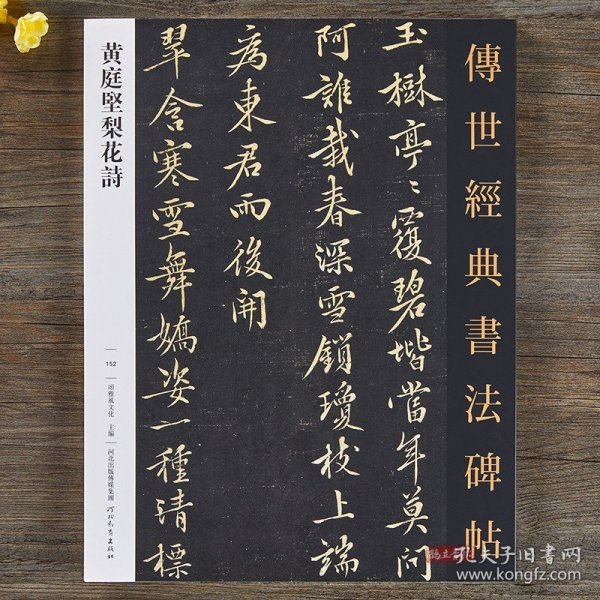 傳世經典書法碑帖
玉樹亭〻覆碧堦當年莫問
阿誰栽春深雪鎖瓊枝上端
為東君而後開
翠含寒雪舞嬌姿一種清標
黄庭堅梨花詩
152
頌雅風文化 主編
河北出版傳媒集團
河北教育出版社
孔夫子旧書网
www.kongfz.com